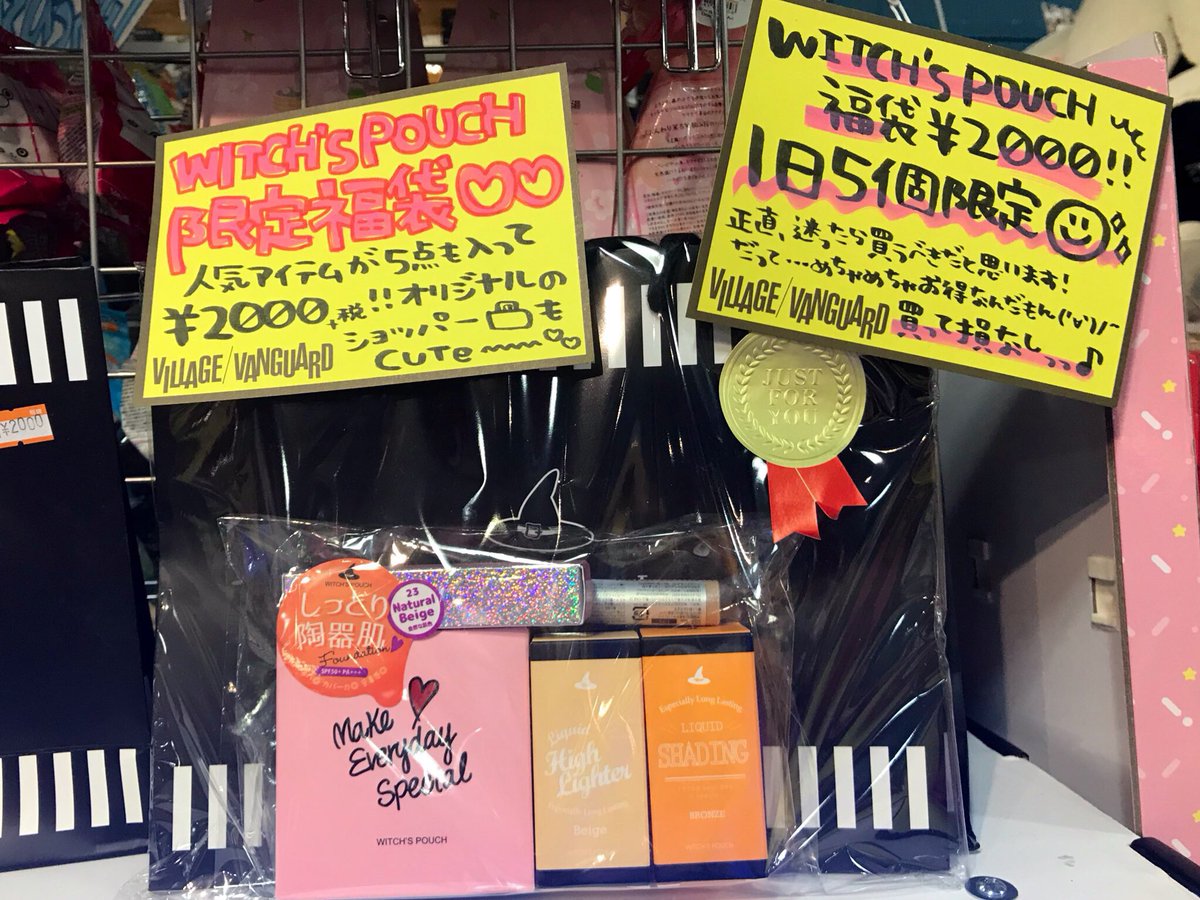 WITCH'S POUCH
限定福袋
人気アイテムが5点も入って
¥2000+税!!オリジナルの
ショッパーも
CUTE
VILLAGE/VANGUARD
WITCH'S POUCH
福袋¥2000!!
1日5個限定
正直、迷ったら買うべきだと思います!
だって…めちゃめちゃお得なんだもん('∀')/
VILLAGE/VANGUARD
買って損なしっっ♪
¥2000
JUST
FOR
YOU
WITCH'S POUCH
しっとり
陶器肌
Foundation
SPF50+ PA+++
23
Natural
Beige
Make
Everyday
Special
WITCH'S POUCH
Liquid
High
Lighter
Especially Long Lasting
Beige
Especially Long Lasting
LIQUID
SHADING
BRONZE
WITCH'S POUCH